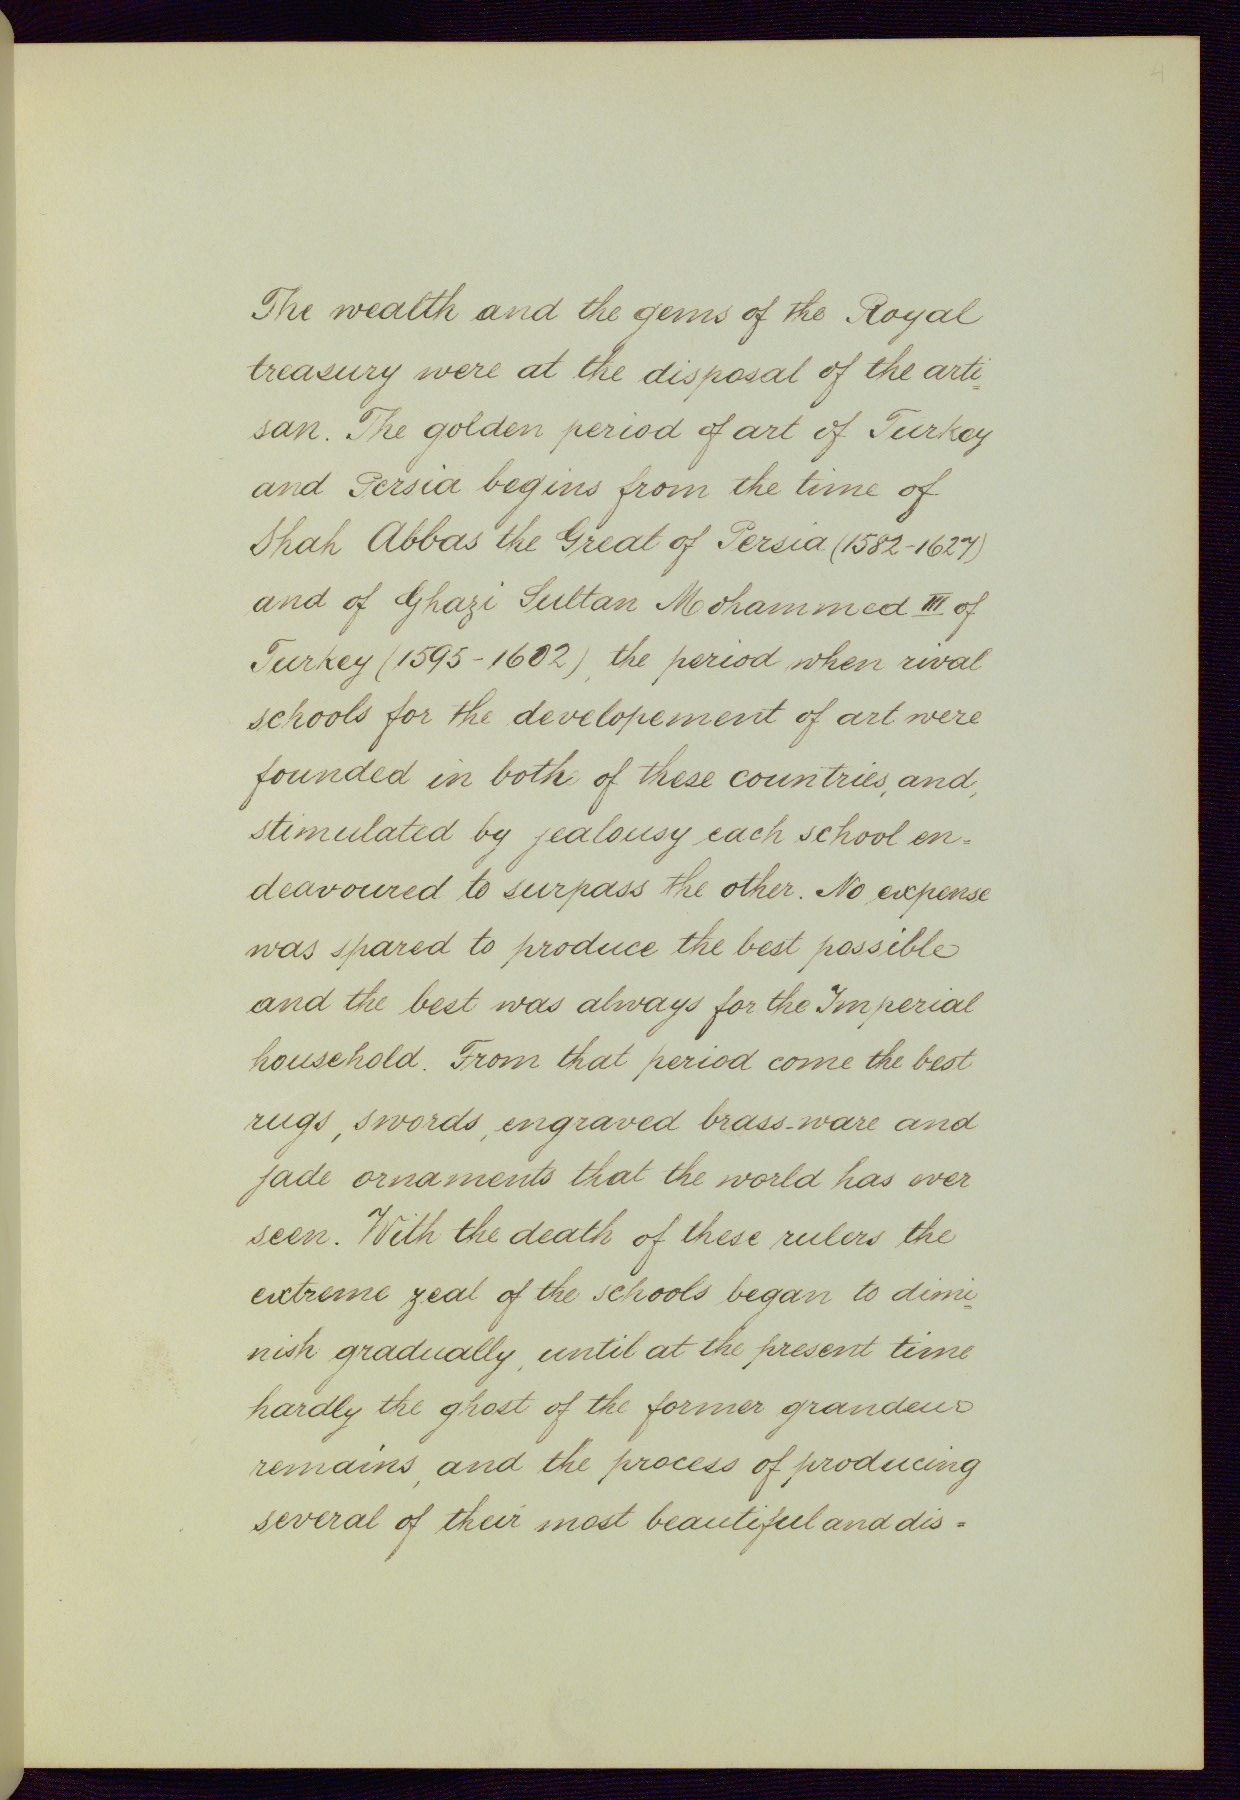 4
The wealth and the gems of the Royal
treasury were at the disposal of the arti=
san. The golden period of art of Turkey
and Persia begins from the time of
Shah Abbas the Great of Persia (1582-1627)
and of Ghazi Sultan Mohammed III of
Turkey (1595-1602), the period when rival
schools for the developement of art were
founded in both of these countries, and,
stimulated by jealousy each school en=
deavoured to surpass the other. No expense
was spared to produce the best possible
and the best was always for the Imperial
household. From that period come the best
rugs, swords, engraved brass-ware and
jade ornaments that the world has ever
seen. With the death of these rulers the
extreme zeal of the schools began to dimi=
nish gradually, until at the present time
hardly the ghost of the former grandeur
remains, and the process of producing
several of their most beautiful and dis=